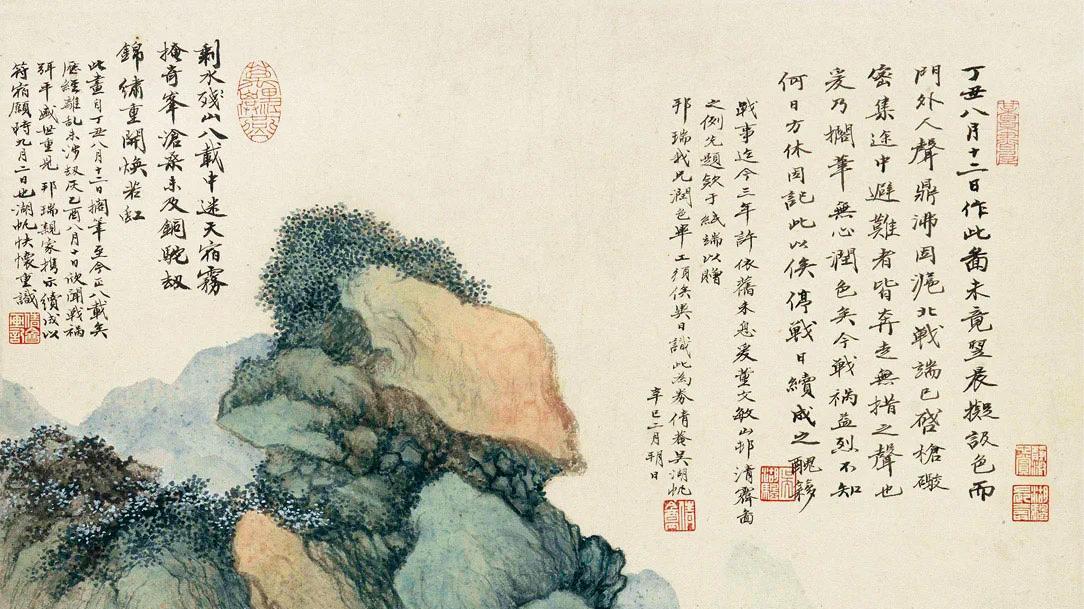 丁丑八月十二日作此圖未竟翌晨擬設色而
門外人聲鼎沸因滬北戰端已啓槍礮
密集途中避難者皆奔走無措之聲也
爰乃擱筆無心潤色矣今戰禍益烈不知
何日方休因記此以俟停戰日續成之醜簃
戰事迄今三年許依舊未息爰董文敏山邨清霽圖
之例先題欵于紙端以贈
邦瑞我兄潤色畢工須俟異日識此為券倩菴吳湖帆
辛巳二月朔日
剩水殘山八載中迷天宿霧
掩奇峯滄桑未及銅駝劫
錦繡重開煥若虹
此畫自丁丑八月十二日擱筆至今正八載矣
歷經離亂未涉劫灰乙酉八月十日欣聞戰禍
弭平盛世重見邦瑞親家攜示續成以
符宿願時九月二日也湖帆快懷重識